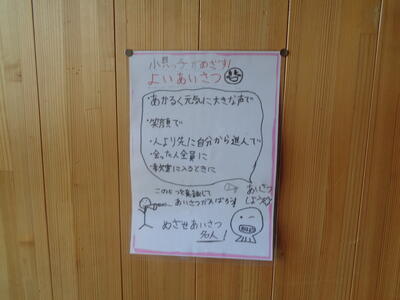 小具っ子がめざす!
よいあいさつ
・あかるく元気に大きな声で
・笑顔で
・人より先に自分から進んで
・会った人全員に
・教室に入るときに
この5つを意識して
あいさつがんばろう!
あいさつ
しようね
めざせあいさつ
名人!